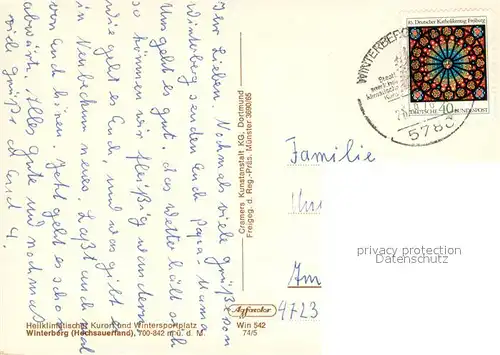 Ihr Lieben. Nochmals viele Grüße von
Winterberg senden Euch Papa + Mama
Uns geht es gut, das Wetter hält sich
so können wir fleißig wandern
wie geht es Euch, und was gibt es
in Neubeckum neues. Laßt auch mal
von Euch hören. Jetzt geht es schon
abwärts. Alles gute und nochmals
viele Grüße
Heilklimatischer Kurort und Wintersportplatz
Winterberg (Hochsauerland), 700-842 m ü. d. M.
Agfacolor
Win 542
74/5
Cramers Kunstanstalt KG, Dortmund
Freigeg. d. Reg.-Präs. Münster 3690/85
85. Deutscher Katholikentag Freiburg
40
DEUTSCHE BUNDESPOST
WINTERBERG
5788
Familie
Am
4723
privacy protection
DATENSCHUTZ